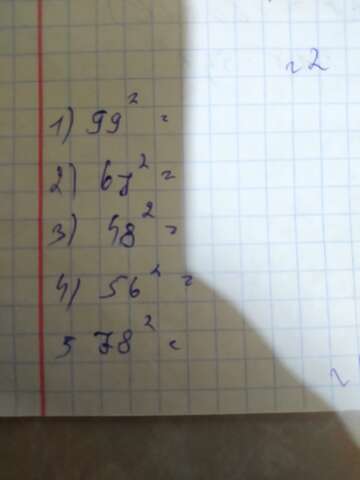 ~2
1) 99² =
2) 67² =
3) 48² =
4) 56² =
5 78² =